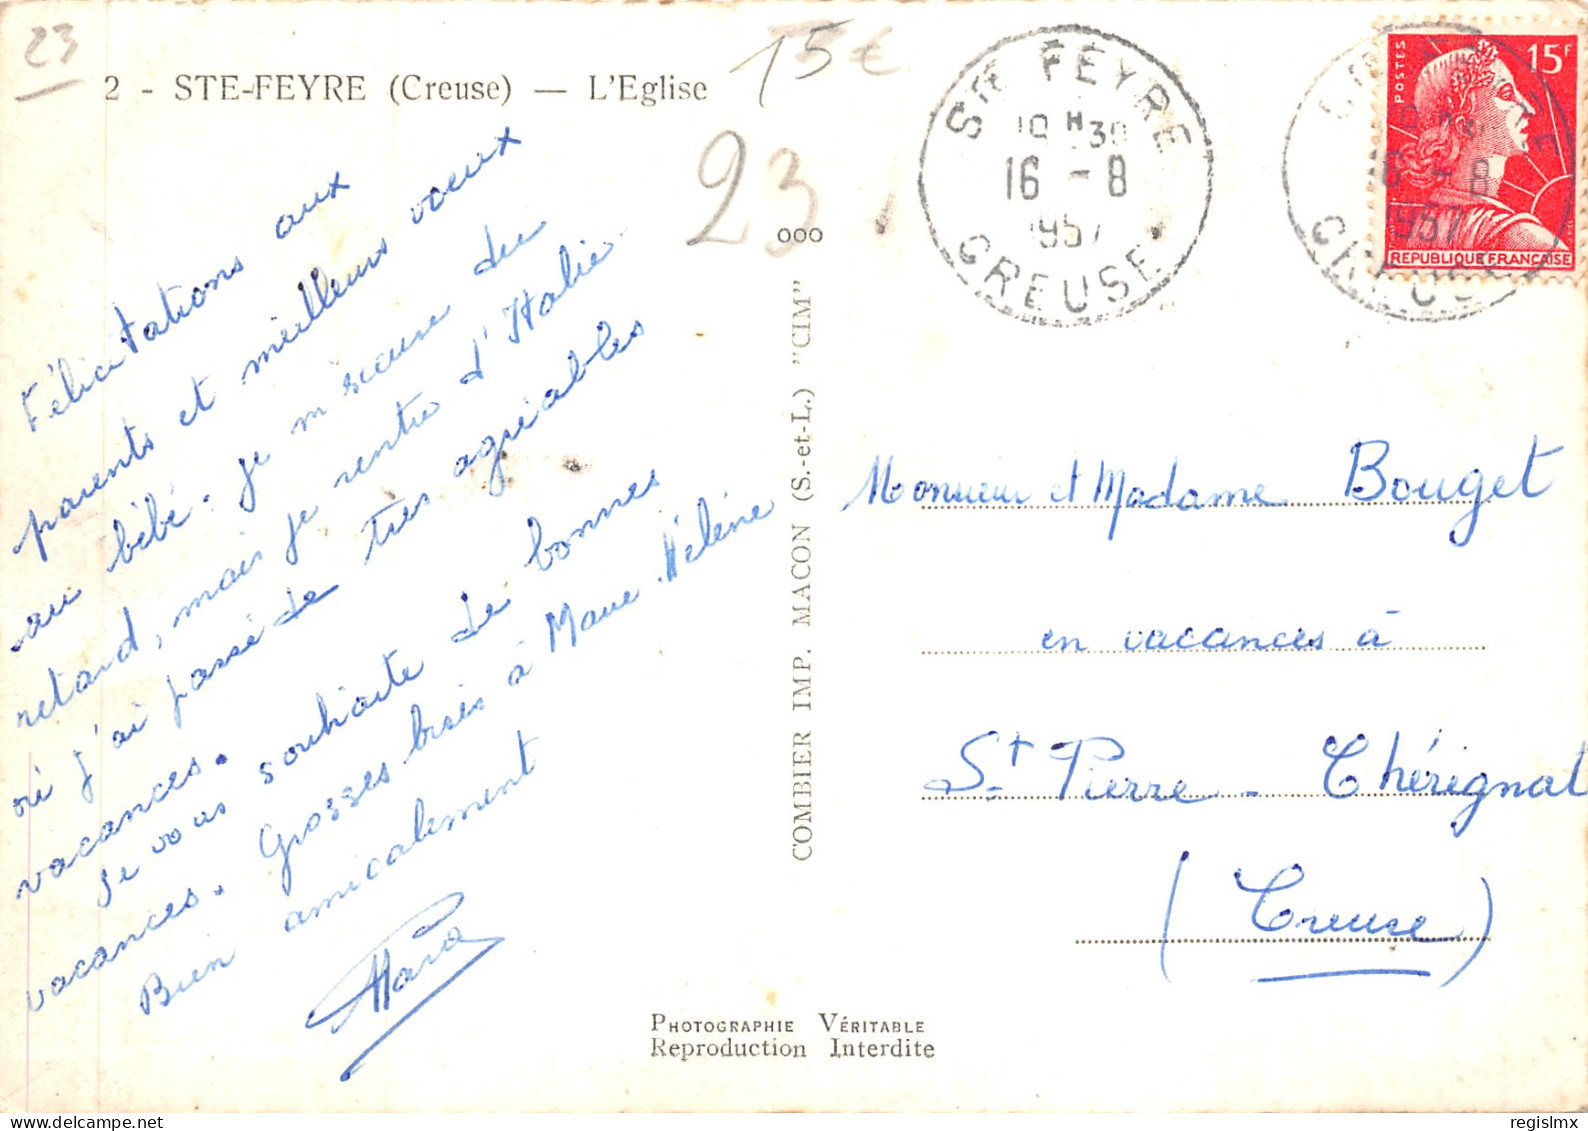 23
2 - STE-FEYRE (Creuse) — L'Eglise
15€
23
Félicitations aux
parents et meilleurs voeux
au bébé. Je m'excuse du
retard, mais je rentre d'Italie
où j'ai passé de très agréables
vacances.
Je vous souhaite de bonnes
vacances. Grosses bises à Marie-Hélène
Bien amicalement
000
COMBIER IMP. MACON (S.-et-L.) "CIM"
STE FEYRE
16 - 8
1957
CREUSE
16 - 8
1957
CREUSE
POSTES
15F
REPUBLIQUE FRANÇAISE
Monsieur et Madame Bouget
en vacances à
St Pierre - Chérignat
(Creuse)
PHOTOGRAPHIE VÉRITABLE
Reproduction Interdite
regislmx